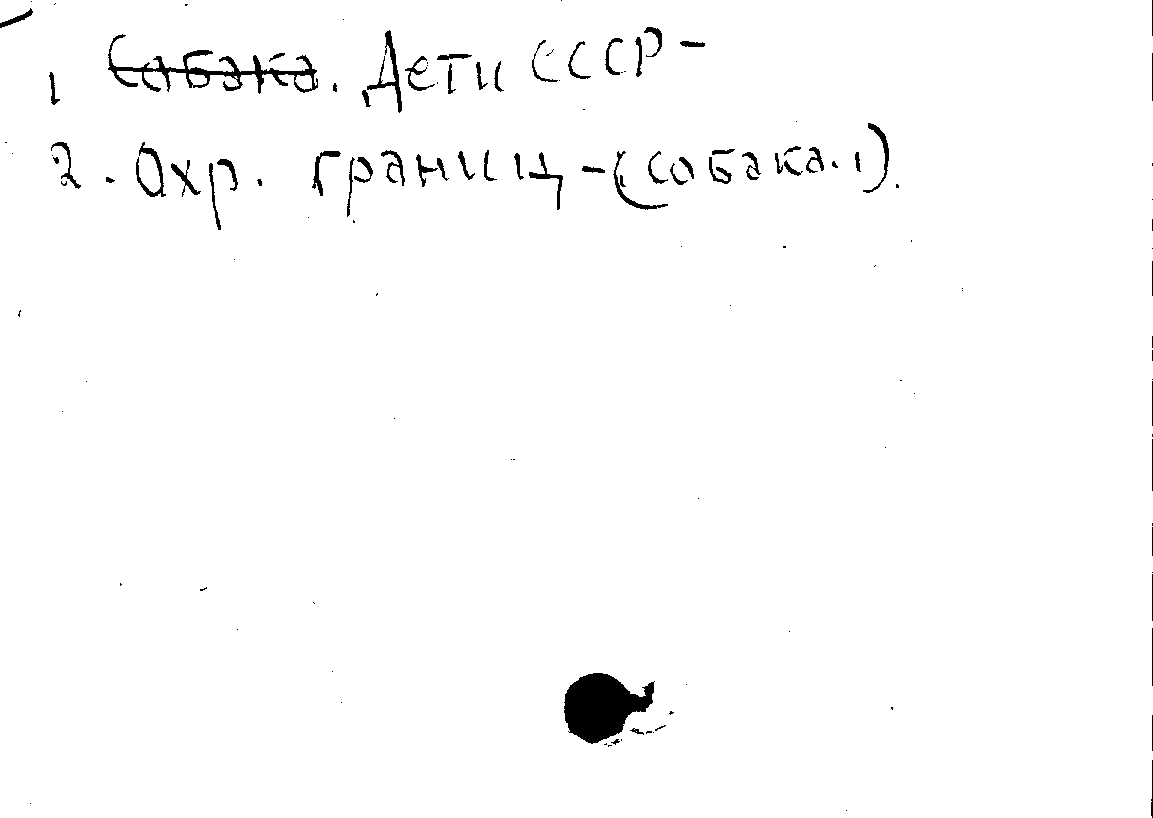 1 Собака. Дети СССР-
2. Охр. границ-(собака.1).